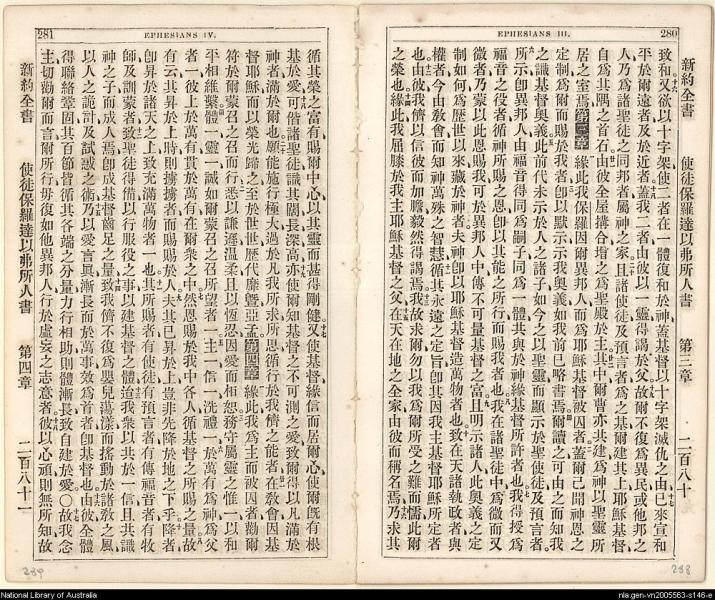 EPHESIANS III.
280
新約全書
使徒保羅達以弗所人書
第三章
二百八十
致和又欲以十字架使二者在一體復和於神蓋基督以十字架滅仇之由已來宣和
平於爾遠者及於近者蓋我二者由彼以一靈得謁於父故爾不復爲異民或他邦之
人乃爲諸聖徒之同邦者屬神之家且諸使徒及預言者爲之基爾建其上耶穌基督
自爲其隅之首石由彼全屋搆合增之爲聖殿於主其中爾曹亦共建爲神以聖靈所
居之室焉第三章緣此我保羅因爾異邦人而爲耶穌基督被囚者蓋爾已聞神恩之
定制爲爾而賜於我者卽以默示示我奧義如我前已略書焉爾讀之可由之而知我
之識基督奧義此前代未示於人之諸子如今之以聖靈而顯示於聖使徒及預言者
所示卽異邦人由福音得同爲嗣子同爲一體共與於神緣基督所許者也我得授爲
福音之役者循神所賜之恩卽以其能之所行而賜我者也我在諸聖徒中爲微而又
微者乃蒙以此恩賜我可於異邦人中傳不可量基督之富且明示諸人此奧義之定
制如何爲歷世以來藏於神者夫神卽以耶穌基督造萬物者也致在天諸執政者與
權者今由敎會而知神萬殊之智慧循其永遠之定旨卽其因我主基督耶穌所定者
也由彼我儕以信彼而加膽毅然得謁焉我故求爾勿以我爲爾所受之難而懦此爾
之榮也緣此我屈膝於我主耶穌基督之父在天在地之全家由彼而稱名焉乃求其
281
EPHESIANS IV.
循其榮之富有賜爾中心以其靈而甚得剛健又使基督緣信而居爾心使爾旣有根
基於愛可偕諸聖徒識其闊長深高亦使爾知基督之不可測之愛致爾得以凡滿於
神者滿於爾也願能施行極大過於凡我所求所思循行於我儕之能者在敎會因基
督耶穌而以榮光歸之至於世世歷代靡曁亞孟第四章緣此我爲主而被囚者勸爾
符於爾蒙召之召而行悉以謙遜溫柔且以恆忍因愛而相恕務守屬靈之惟一以和
平相維繫體一靈一誠如爾蒙召之召所望者一主一信一洗禮一於萬有爲神爲父
者一彼上於萬有貫於萬有在爾衆之中然恩賜於我中各人循基督之所賜之量故
有云其昇於上時則擄擄者而賜賜於人夫其已昇於上豈非先降於地之下乎降者
卽昇於諸天之上致充滿萬物者一也其所賜者有使徒有預言者有傳福音者有牧
師及訓蒙者致聖徒得備以行服役之事以建基督之體迨我衆以共於一信且共識
神之子而成人焉卽成基督齒足之量致我儕不復爲嬰兒蕩漾而搖動於諸敎之風
以人之詭計及試惑之術乃以愛言眞漸長而於萬事效爲首者卽基督也由彼全體
得聯絡鞏固其百節皆循其各端之分量力行相助則體漸長致自建於愛〇故我念
主切勸爾而言爾所行毋復如他異邦人行於虛妄之志意者彼以心頑則無所知故
新約全書
使徒保羅達以弗所人書
第四章
二百八十一
289
288
National Library of Australia
nla.gen-vn2005563-s146-e